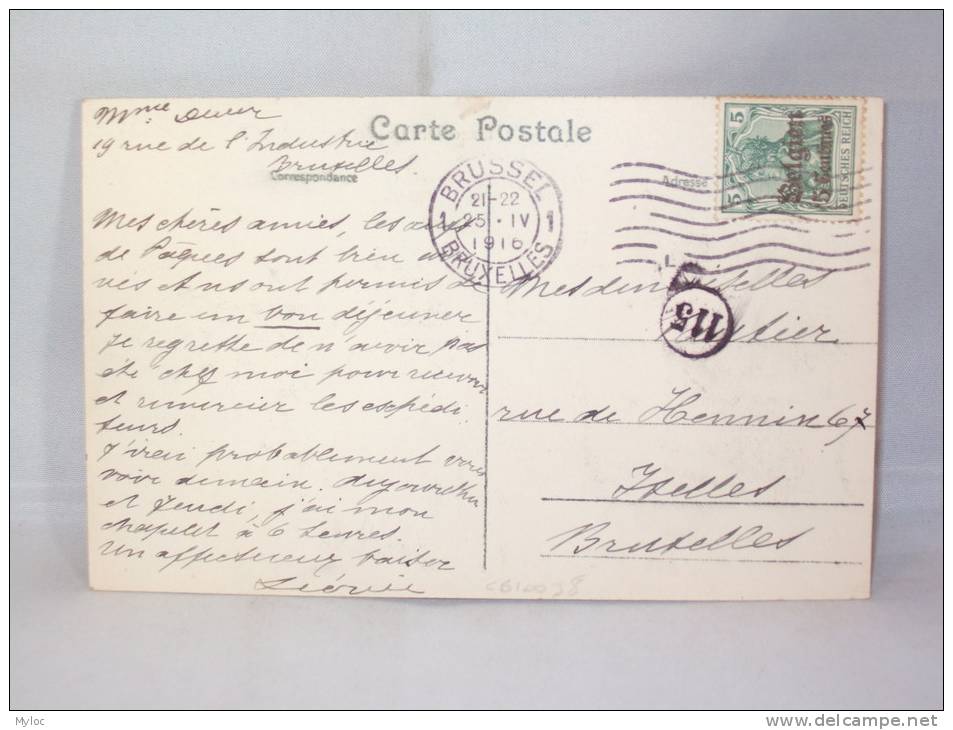 Mme
19 rue de l'Industrie
Bruxelles.
Carte Postale
Correspondance
Adresse
BRUSSEL
21-22
1 25 · IV 1
1916
BRUXELLES
5
5
Belgien
5 Centimes
DEUTSCHES REICH
115
Mes chères amies, les
de Pâques sont bien
et nous ont permis de
faire un bon déjeuner
Je regrette de n'avoir pas
été chez moi pour recevoir
et remercier les expédi
teurs.
J'irai probablement vous
voir demain. Aujourd'hui
et jeudi, j'ai mon
chapelet à 6 heures.
Un affectueux baiser
Léonie
Mesdemoiselles
rue de Hennin 67
Ixelles
Bruxelles
Myloc
delcampe.net